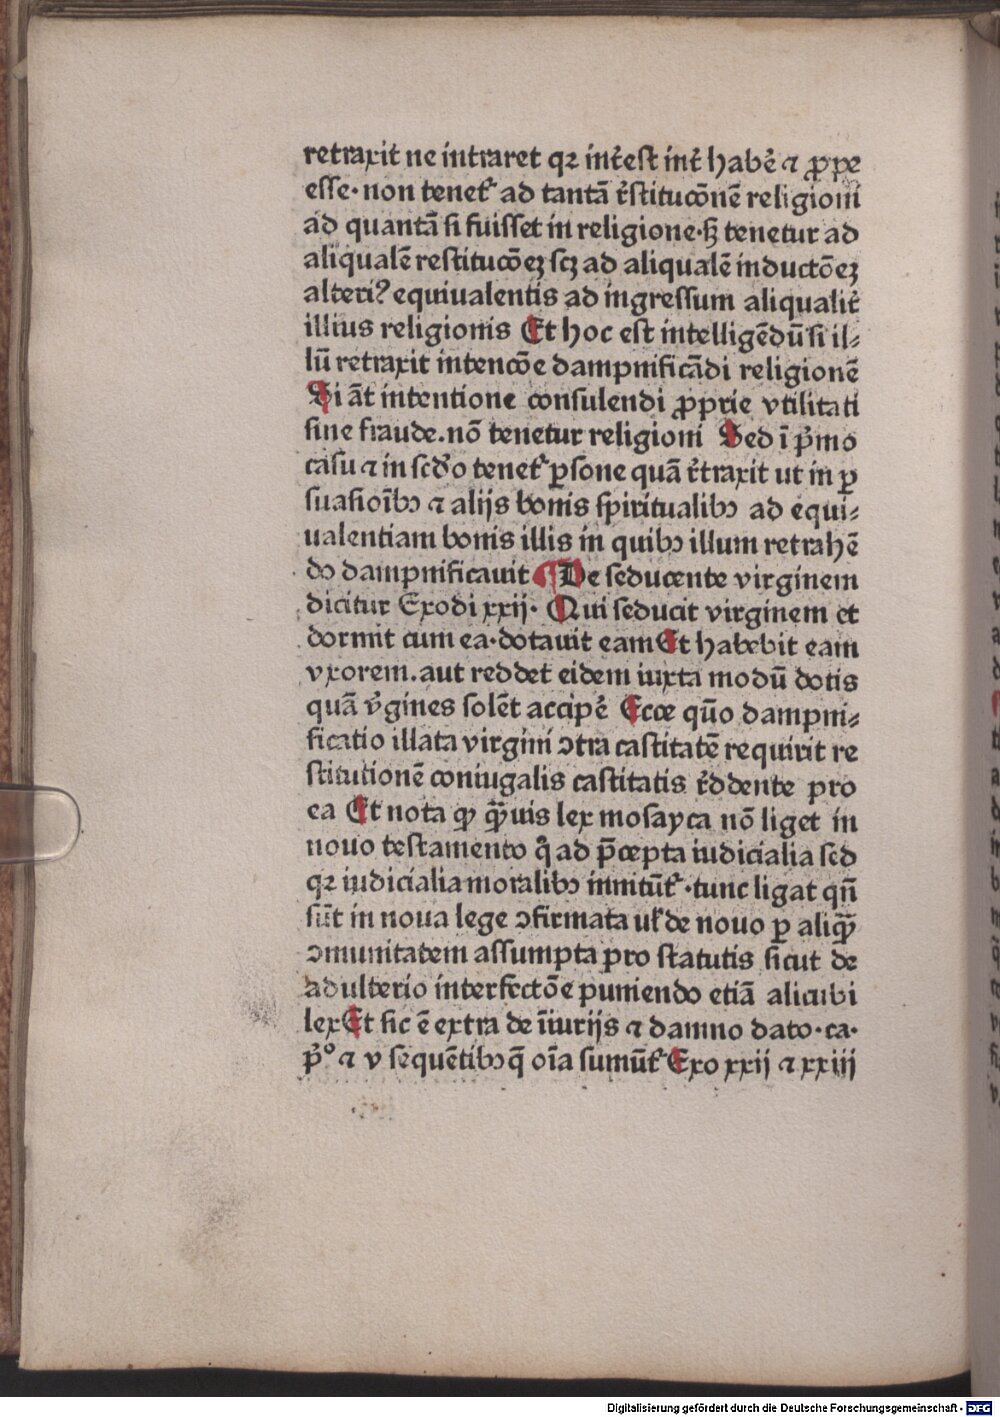 retraxit ne intraret qꝛ int̃est int̃ habẽ ⁊ ꝓpe
esse· non tenet᷑ ad tantã r̃stitucõnẽ religioni
ad quantã si fuisset in religione·sꝫ tenetur ad
aliqualẽ restitucõeꝫ scꝫ ad aliqualẽ inductõeꝫ
alteri? equiualentis ad ingressum aliqualit̃
illius religionis Et hoc est intelligẽdũ si il⸗
lũ retraxit intencõe dampnificãdi religionẽ
Si ãt intentione consulendi ꝓprie vtilitati
sine fraude. nõ tenetur religioni Sed ĩ p̃mo
casu ⁊ in scd̃o tenet᷑ ꝑsone quã r̃traxit ut in ꝑ
suasioĩbꝰ ⁊ alijs bonis spiritualibꝰ ad equi⸗
ualentiam bonis illis in quibꝰ illum retrahẽ
do dampnificauit ¶ De seducente virginem
dicitur Exodi xxij· Qui seducit virginem et
dormit cum ea·dotauit eam Et habebit eam
vxorem. aut reddet eidem iuxta modũ dotis
quã ṽgines solẽt accipẽ Ecce qũo dampni⸗
ficatio illata virgini ↄtra castitatẽ requirit re
stitutionẽ coniugalis castitatis r̃ddente pro
ea Et nota ꝙ q̃uis lex mosayca nõ liget in
nouo testamento q̃ ad p̃cepta iudicialia sed
qꝛ iudicialia moralibꝰ innitũt᷑ ·tunc ligat qñ
sũt in noua lege ↄfirmata uł de nouo ꝑ aliq̃
ↄmunitatem assumpta pro statutis sicut de
adulterio interfectõe puniendo etiã alicubi
lex Et sic ẽ extra de ĩiurijs ⁊ damno dato·ca·
p̃° ⁊ v sequẽtibꝰ q̃ oĩa sumũt᷑ Exo xxij ⁊ xxiij
Digitalisierung gefördert durch die Deutsche Forschungsgemeinschaft - DFG